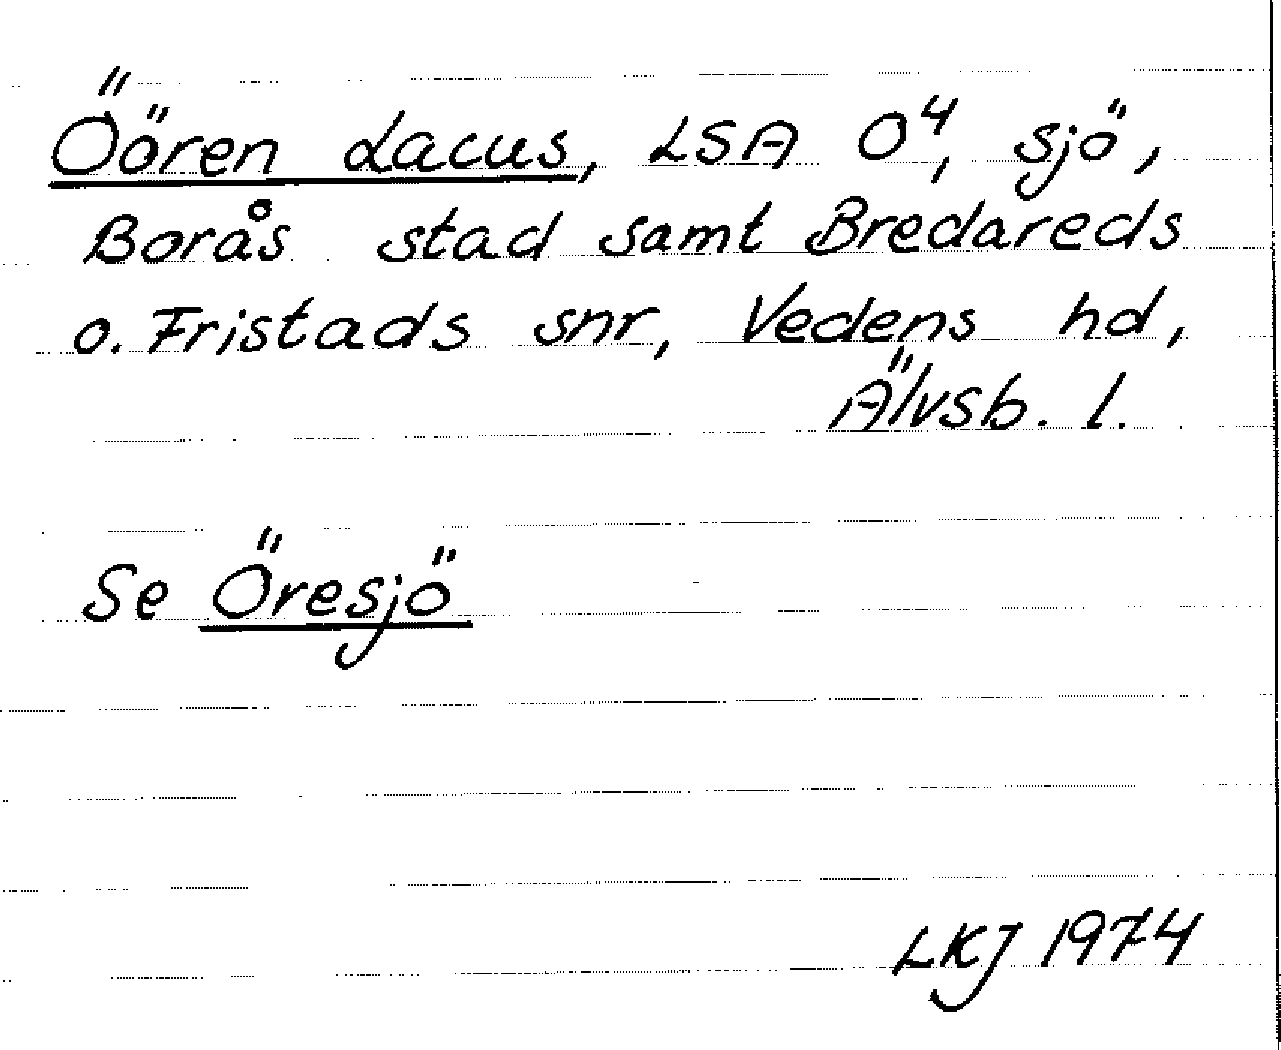 Öören Lacus, LSA O⁴, sjö,
Borås stad samt Bredareds
o. Fristads snr, Vedens hd,
Älvsb. l.
Se Öresjö
LKJ 1974